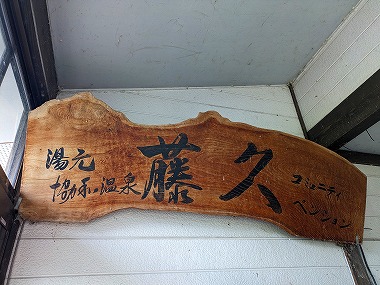 湯元
協和の温泉
藤久
コミュニティ
ペンション